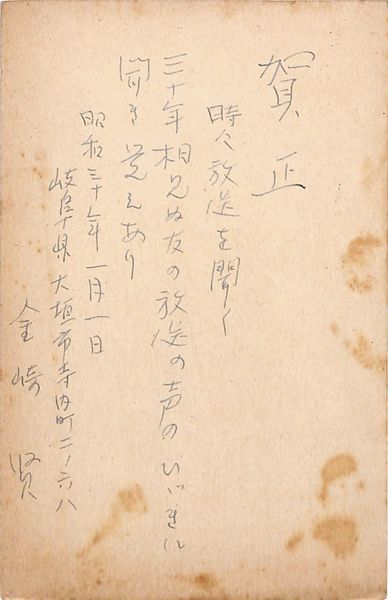 賀正
時々放送を聞く
三十年相見ぬ友の放送の声のひゞきに
聞き覚えあり
昭和三十年一月一日
岐阜県大垣市寺内町二ノ六八
金崎賢